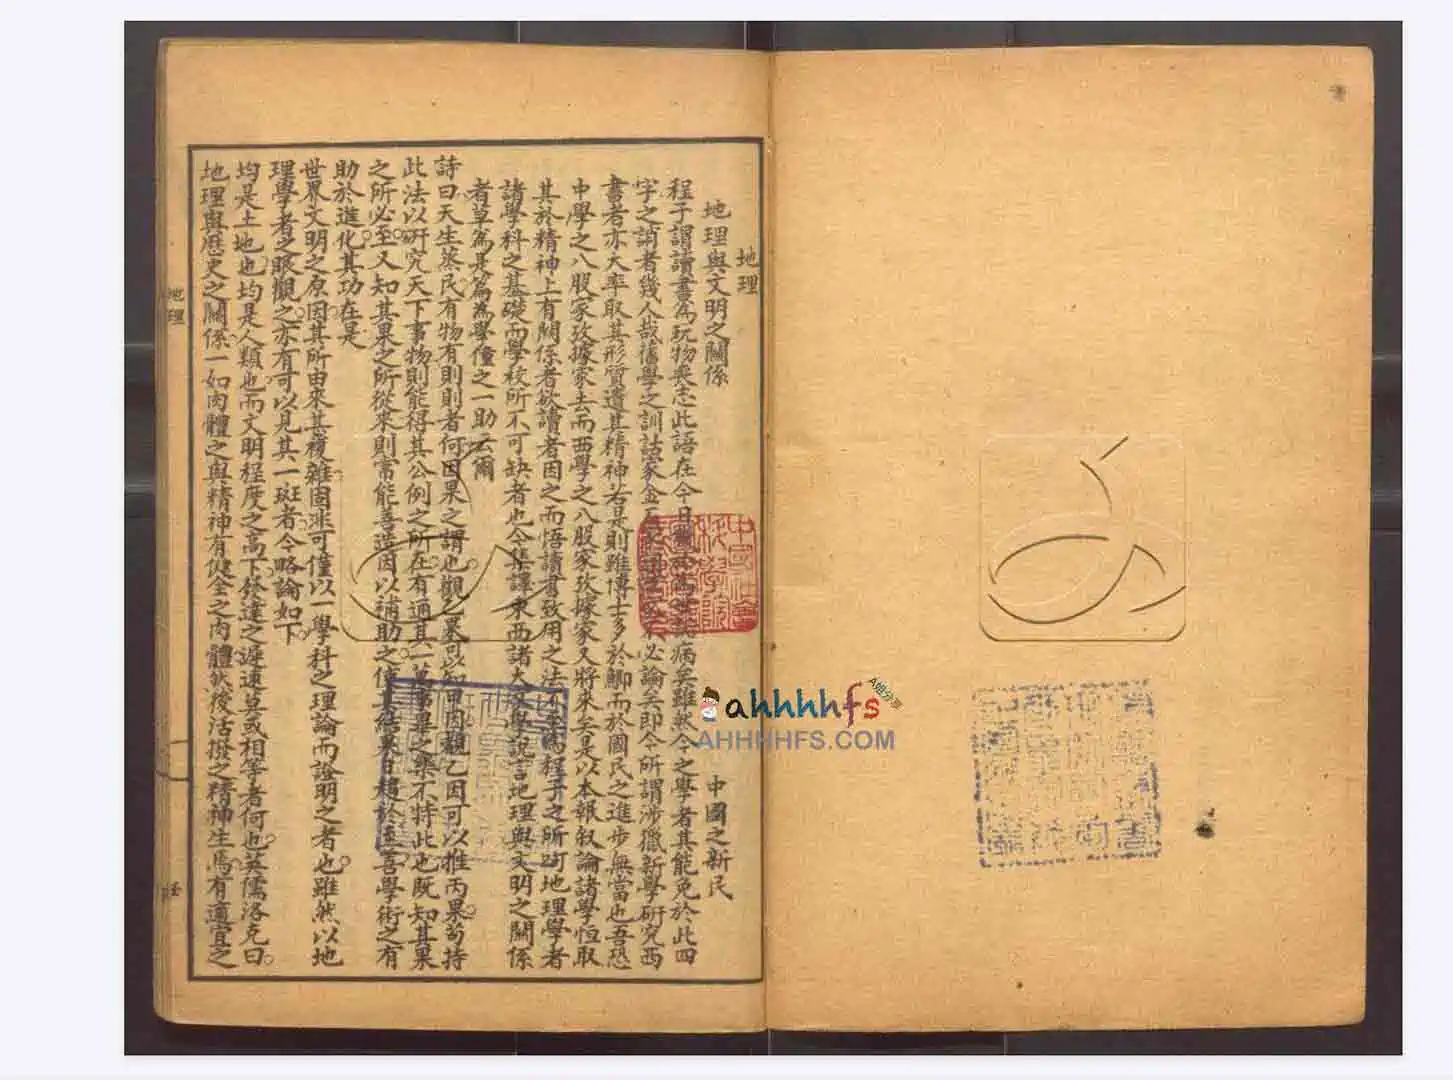 地理
地理與文明之關係
中國之新民
程子謂讀書為玩物喪志此語在今日病矣雖然今之學者其能免於此四
字之誚者幾人哉舊學之訓詁家金必論矣即今所謂涉獵新學研究西
書者亦大率取其形質遺其精神若是則雖博士多於鯽而於國民之進步無當也吾恐
中學之八股家攷據家去而西學之八股家攷據家又將來矣是以本報叙論諸學恒取
其於精神上有關係者欲讀者因之而悟讀書致用之法不至為程子之所呵地理學者
諸學科之基礎而學校所不可缺者也今集譯東西諸大家學說言地理與文明之關係
者草為是篇為學僮之一助云爾
詩曰天生蒸民有物有則則者何因果之謂也觀乙果可以知甲因觀乙因可以推丙果苟持
此法以研究天下事物則能得其公例之所在有通其一萬事畢之樂不特此也既知其果
之所必至又知其果之所從來則常能善造因以補助之使其結果日趨於至善學術之有
助於進化其功在是
世界文明之原因其所由來甚複雜固非可僅以一學科之理論而證明之者也雖然以地
理學者之眼觀之亦有可以見其一斑者今略論如下
均是土地也均是人類也而文明程度之高下發達之遲速莫或相等者何也英儒洛克曰
地理與歷史之關係一如肉體之與精神有健全之肉體然後活潑之精神生焉有適宜之
地理
ahhhhfs
A姐分享
AHHHHFS.COM